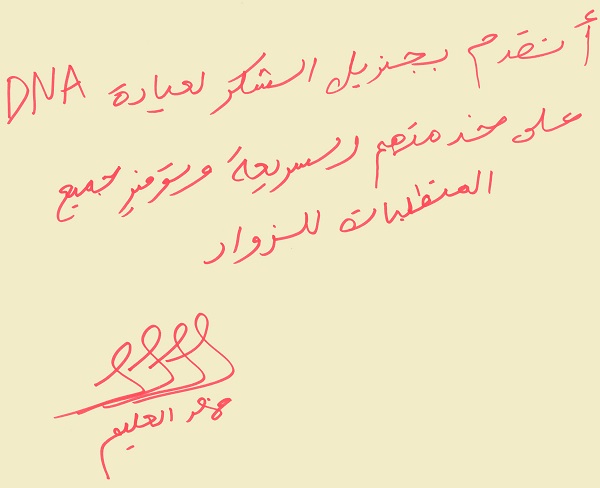 أتقدم بجزيل الشكر لعيادة DNA
على خدمتهم السريعة وتوفير جميع
المتطلبات للزوار
العليم